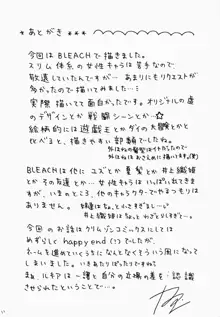 * あとがき ***
今回はBLEACHで描きました。
スリム体系の女性キャラは苦手なので
敬遠していたんですが… あまりにもリクエストが
多かったので描いてみました…ミ
実際描いてて面白かったです。オリジナルの虚
のデザインとか 戦闘シーンとか…☆
絵柄的には遊戯王とかダイの大冒険とかと
比べると、描きやすい部類でしたね。
BLEACHは他に ユズとか 夏梨とか 井上織姫
とか その友達 とか… 女性キャラは いっぱいいるんで
すが、いまのところ、他のキャラクターでやるつもりは
ありません。
今回のお話は クリムゾンコミックスにしては
めずらしく happy end (?) でしたが、
ネームを進めていくうちになんとなくそういう風になって
しまいました。
ね、ルキアは一護と自分の立場の差を 認識
させられたということで…。